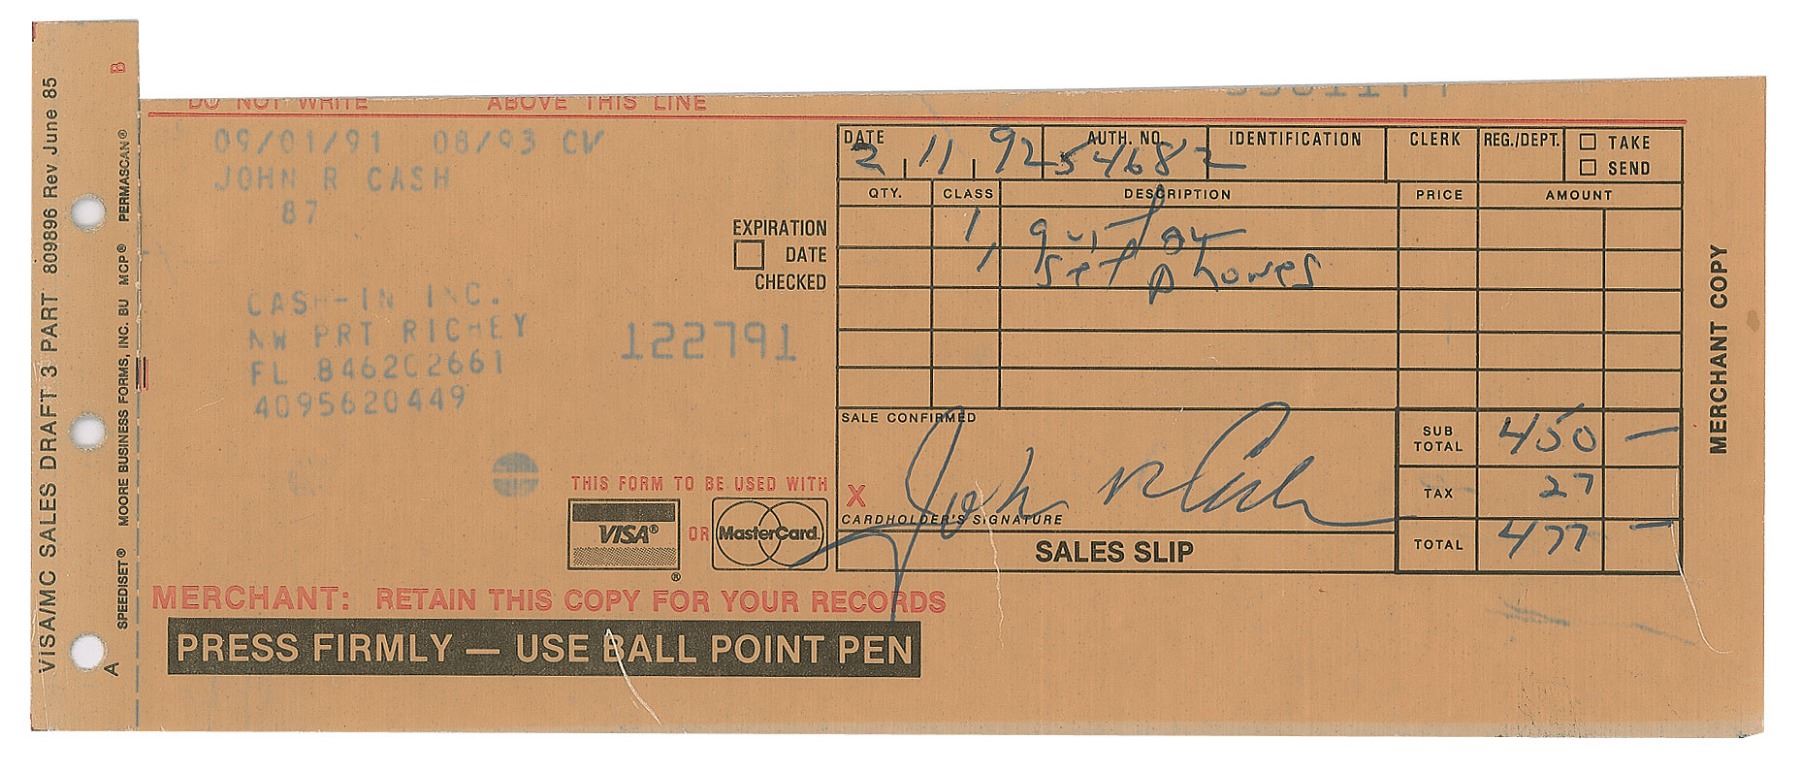 DO NOT WRITE ABOVE THIS LINE
09/01/91 08/93 CV
JOHN R CASH
87
CASH-IN INC.
NW PRT RICHEY
FL 846202661
4095620449
122791
EXPIRATION
DATE
CHECKED
THIS FORM TO BE USED WITH
VISA® OR MasterCard
®
MERCHANT: RETAIN THIS COPY FOR YOUR RECORDS
PRESS FIRMLY — USE BALL POINT PEN
DATE AUTH. NO. IDENTIFICATION CLERK REG./DEPT. TAKE
2 11 92 54682
SEND
QTY. CLASS DESCRIPTION PRICE AMOUNT
1, guitar
1, set phones
SALE CONFIRMED
X John R Cash
CARDHOLDER'S SIGNATURE
SALES SLIP
SUB TOTAL 450 —
TAX 27
TOTAL 477 —
MERCHANT COPY
VISA/MC SALES DRAFT 3 PART 809896 Rev June 85
SPEEDISET® MOORE BUSINESS FORMS, INC. BU MCP® PERMASCAN®
A
B